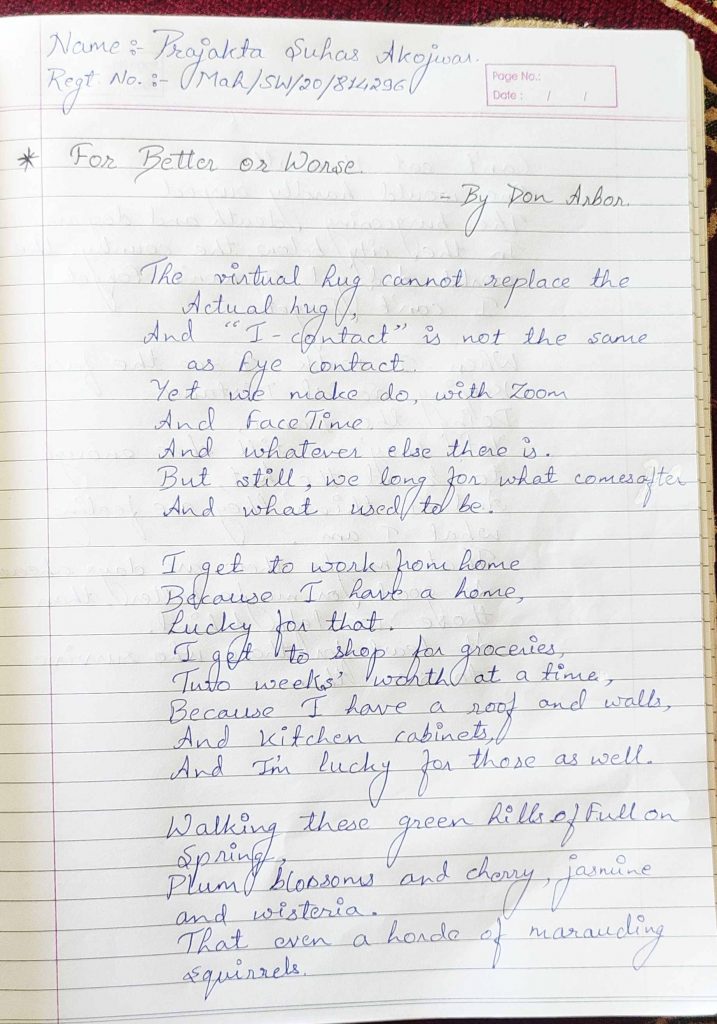 Name :- Prajakta Suhas Akojwar.
Regt No. :- Mah/SW/20/814296
Page No.:
Date : / /
* For Better or Worse.
- By Don Arbor.
The virtual hug cannot replace the
Actual hug,
And "I-contact" is not the same
as Eye contact.
Yet we make do, with Zoom
And FaceTime
And whatever else there is.
But still, we long for what comesafter
And what used to be.
I get to work from home
Because I have a home,
Lucky for that.
I get to shop for groceries,
Two weeks' worth at a time,
Because I have a roof and walls,
And kitchen cabinets,
And I'm lucky for those as well.
Walking these green hills of Full on
Spring,
Plum blossoms and cherry, jasmine
and wisteria.
That even a horde of marauding
squirrels.